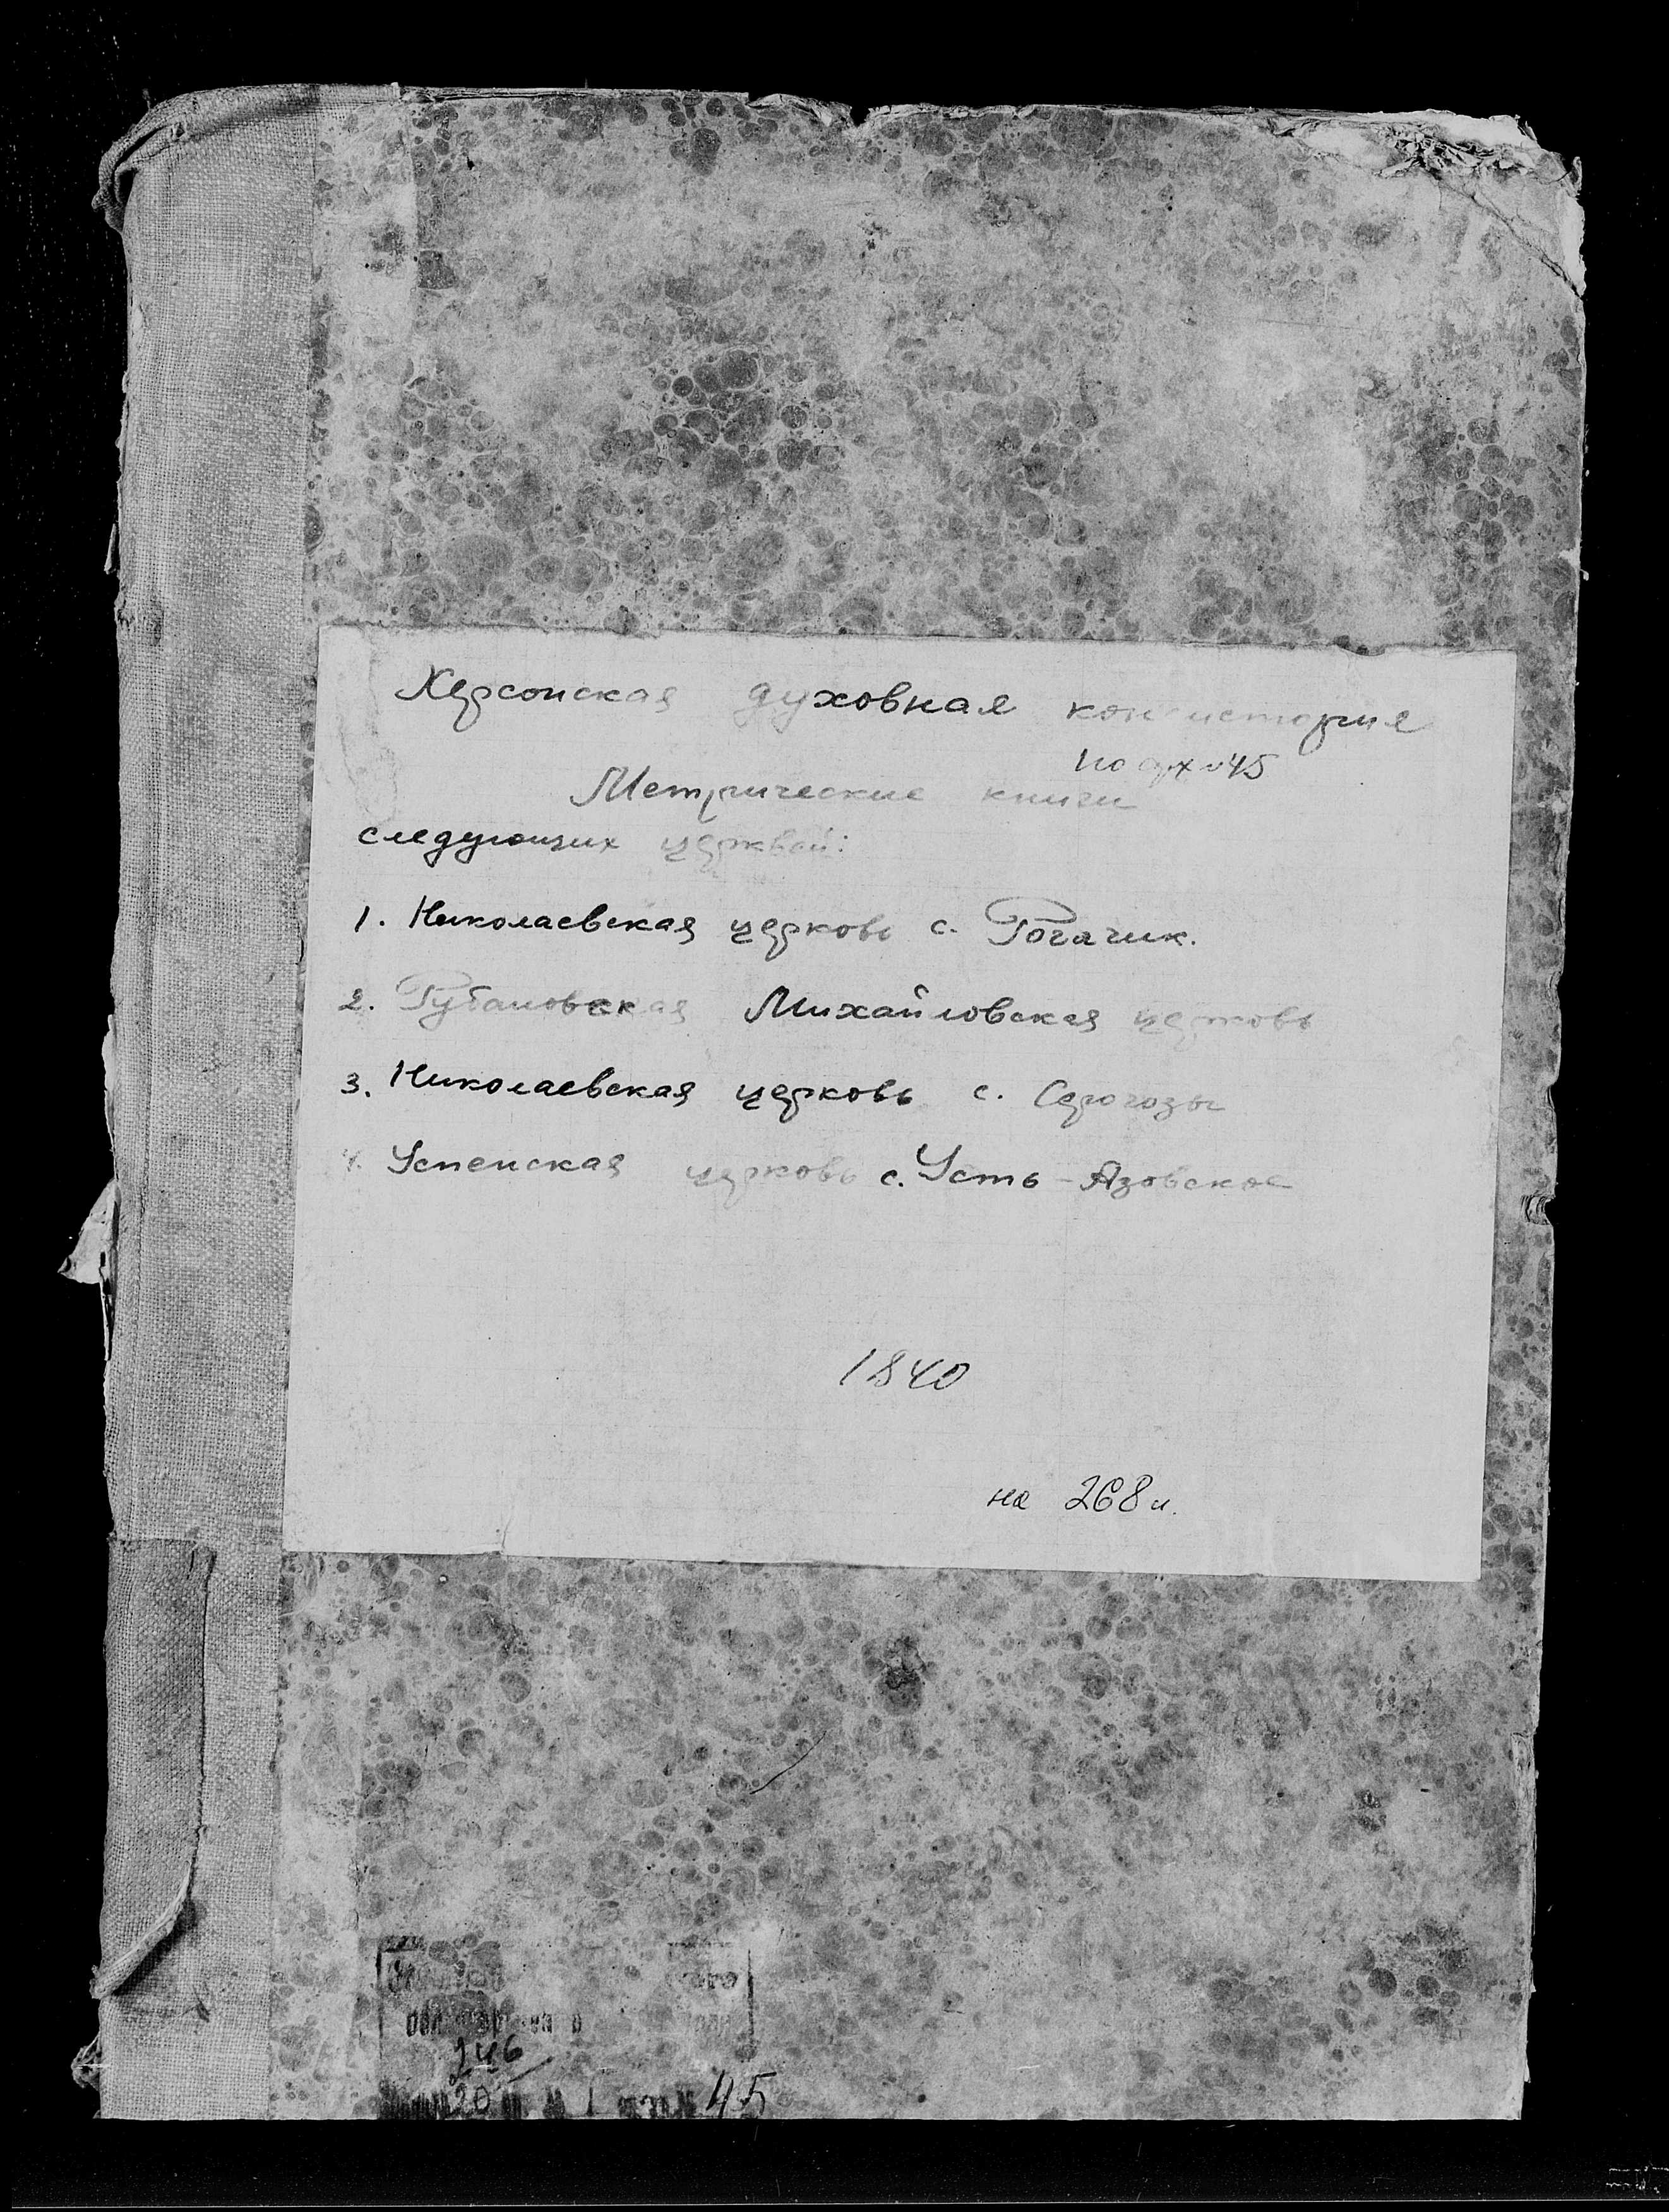 Херсонская духовная консистория
по арх №45
Метрические книги
следующих церквей:
1. Николаевская церковь с. Рогачик.
2. Рубановская Михайловская церковь
3. Николаевская церковь с. Серогозы
4. Успенская церковь с. Усть-Азовское
1840
на 268 л.
246
20
1
45